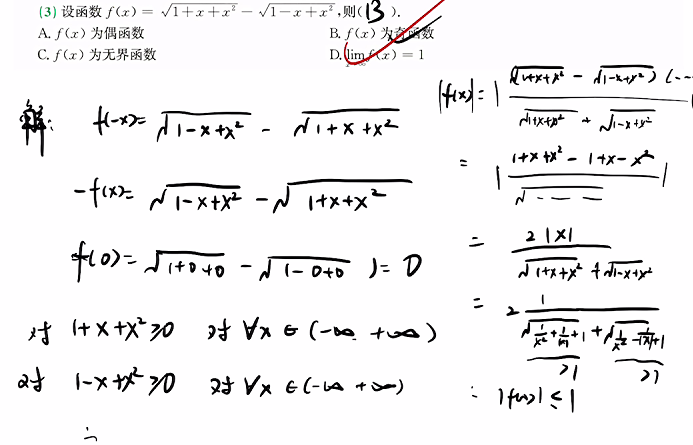 (3) 设函数 f(x) = √(1+x+x²) − √(1−x+x²), 则( B ).
A. f(x) 为偶函数
B. f(x) 为奇函数
C. f(x) 为无界函数
D. lim f(x) = 1
解: f(-x)= √(1-x+x²) - √(1+x+x²)
-f(x)= √(1-x+x²) - √(1+x+x²)
f(0)= √(1+0+0) - √(1-0+0) )= 0
对 1+x+x² ≥0 对 ∀x ∈ (-∞ +∞)
对 1-x+x² ≥0 对 ∀x ∈ (-∞ +∞)
∴
|f(x)| = | (√(1+x+x²) - √(1-x+x²)) (-- / (√(1+x+x²) + √(1-x+x²)) |
= | (1+x+x² - 1+x-x²) / √---- |
= 2|x| / (√(1+x+x²) + √(1-x+x²))
= 2 1 / (√(1/x² + 1/|x| + 1) + √(1/x² - 1/|x| + 1))
>1 >1
∴ |f(x)| ≤ 1